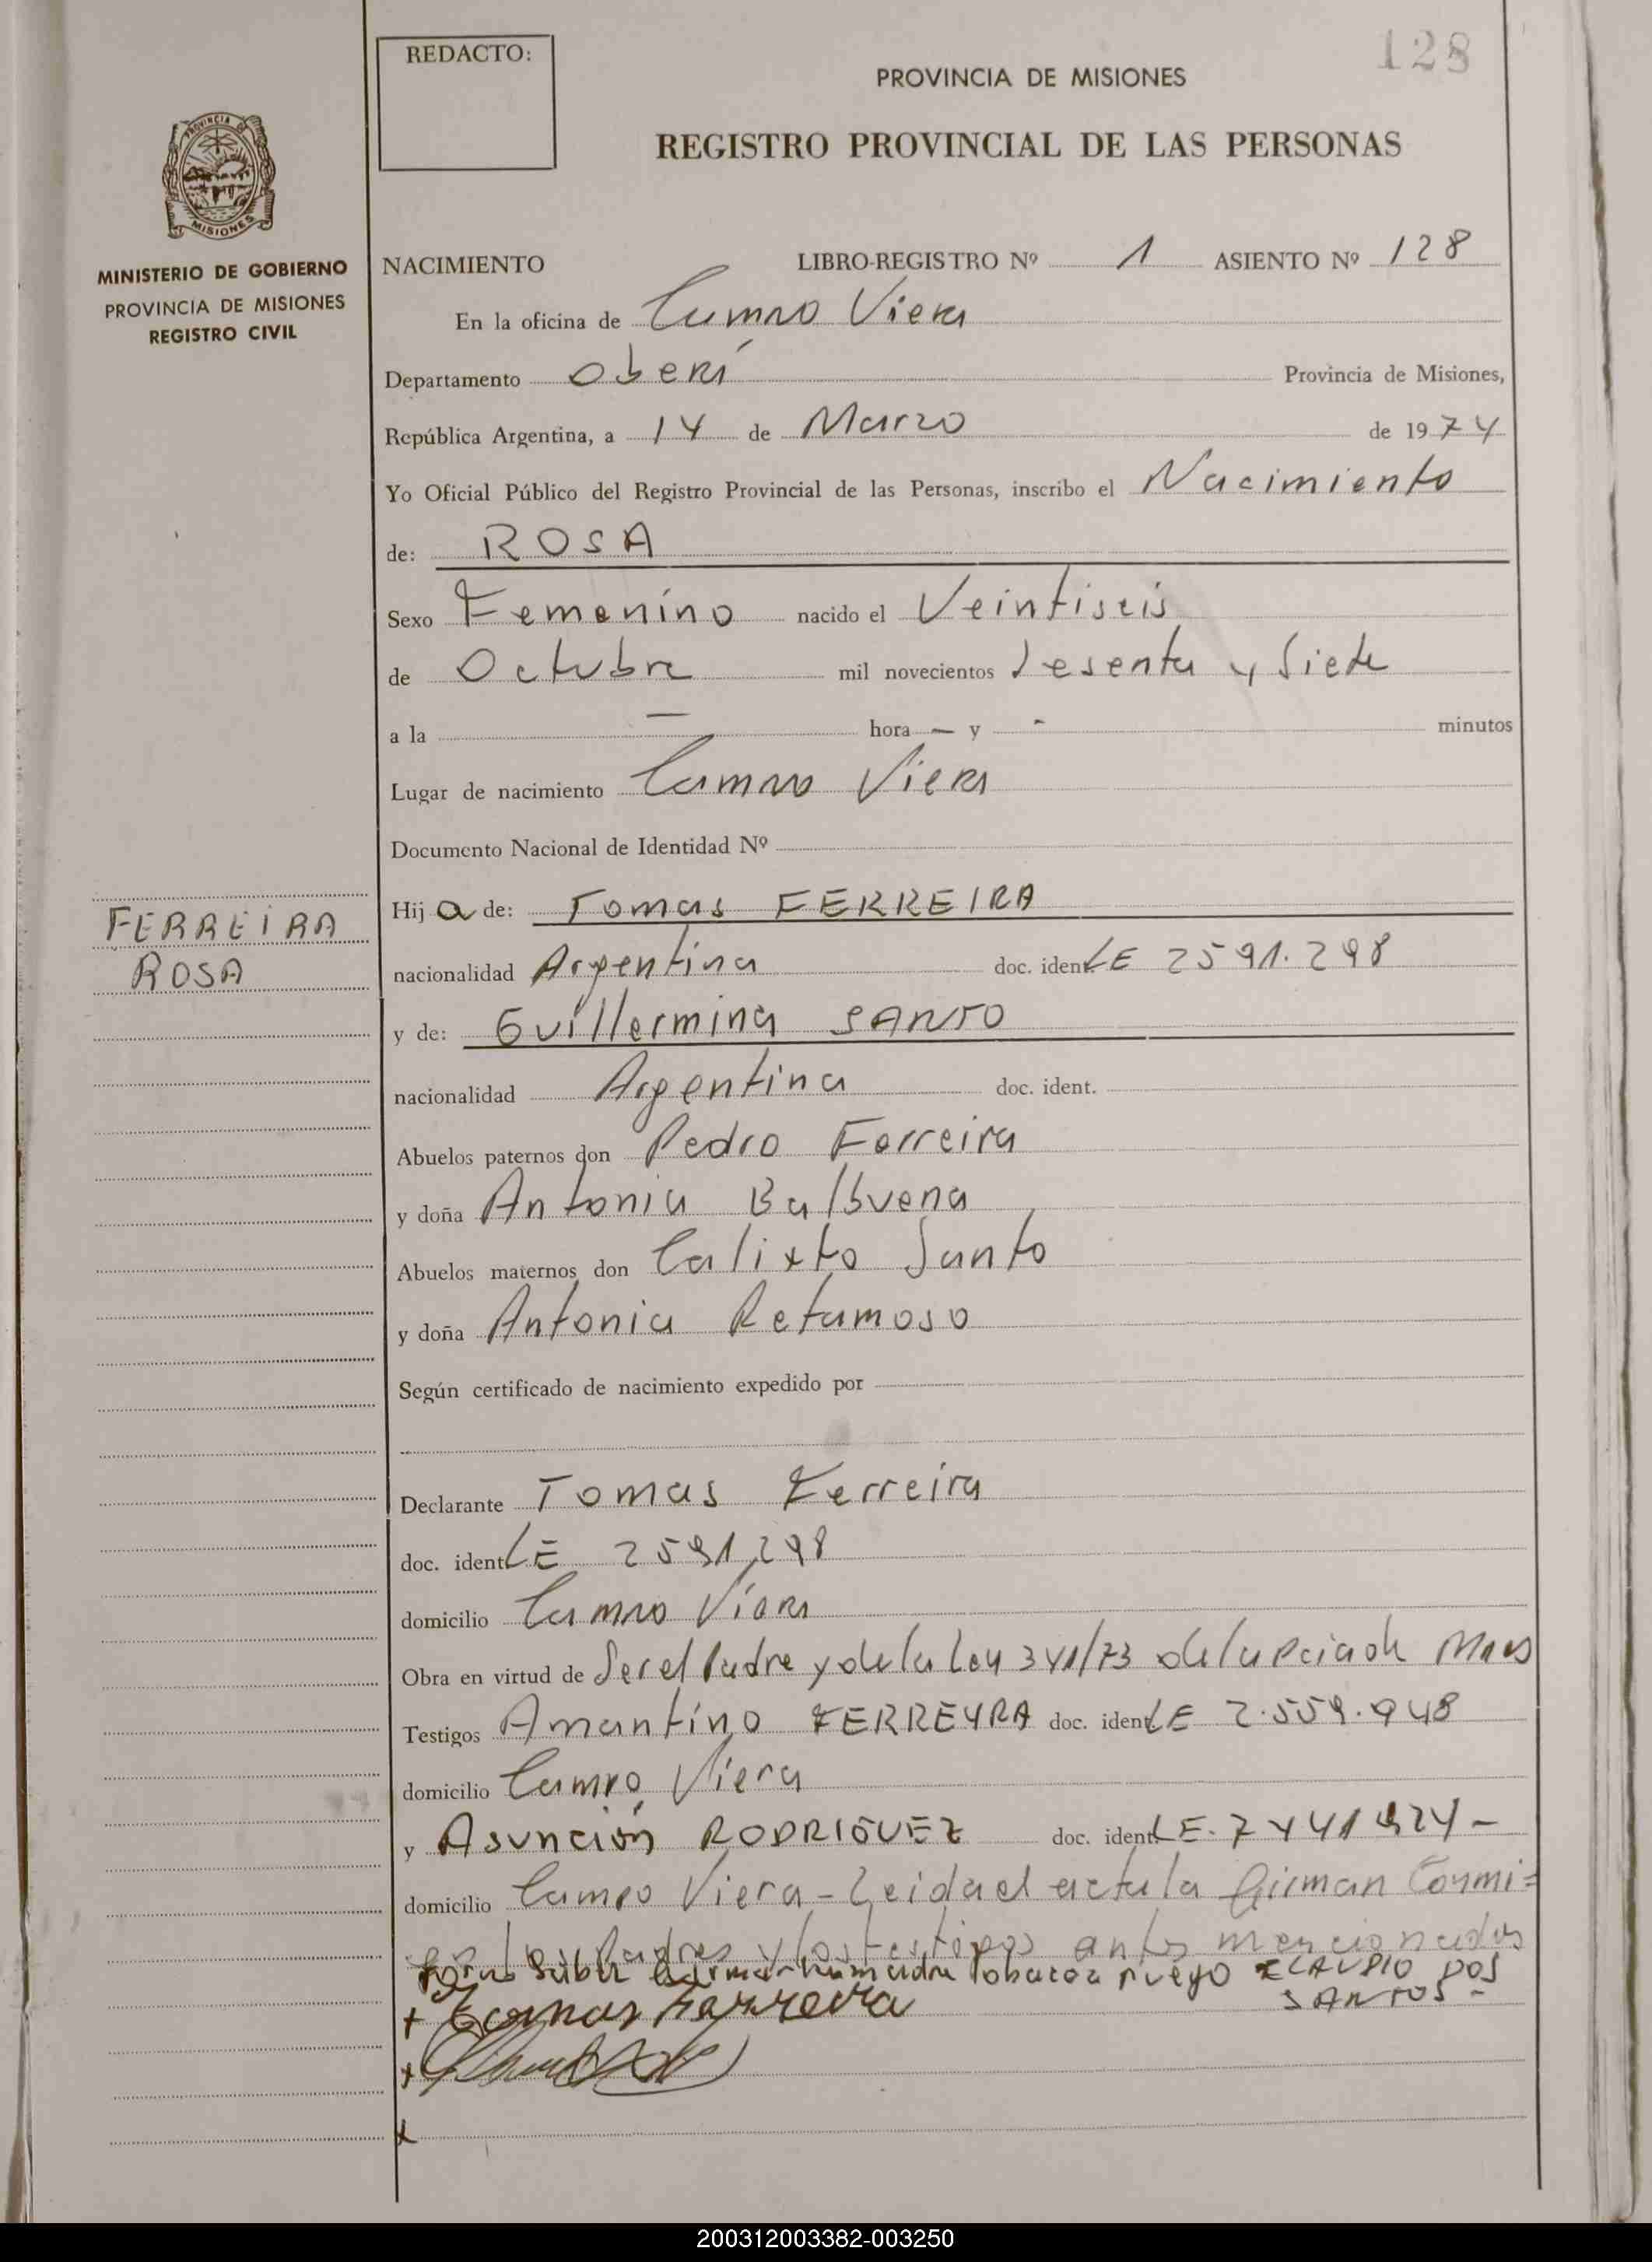 128
REDACTO:
PROVINCIA DE MISIONES
REGISTRO PROVINCIAL DE LAS PERSONAS
PROVINCIA DE
MISIONES
MINISTERIO DE GOBIERNO
PROVINCIA DE MISIONES
REGISTRO CIVIL
NACIMIENTO LIBRO-REGISTRO Nº 1 ASIENTO Nº 128
En la oficina de Campo Viera
Departamento Oberá Provincia de Misiones,
República Argentina, a 14 de Marzo de 1974
Yo Oficial Público del Registro Provincial de las Personas, inscribo el Nacimiento
de: ROSA
Sexo Femenino nacido el Veintiseis
de Octubre mil novecientos Sesenta y Siete
a la — hora — y - minutos
Lugar de nacimiento Campo Viera
Documento Nacional de Identidad Nº
FERREIRA
ROSA
Hija de: Tomas FERREIRA
nacionalidad Argentina doc. ident LE 2591.298
y de: Guillermina SANTO
nacionalidad Argentina doc. ident.
Abuelos paternos don Pedro Ferreira
y doña Antonia Balbuena
Abuelos maternos don Calixto Santo
y doña Antonia Retamoso
Según certificado de nacimiento expedido por
Declarante Tomas Ferreira
doc. ident LE 2591,298
domicilio Campo Viera
Obra en virtud de Ser el Padre y de la Ley 341/73 de la Pcia de Mnes
Testigos Amantino FERREYRA doc. ident LE 2.559.948
domicilio Campo Viera
y Asunción RODRIGUEZ doc. ident LE. 7441924-
domicilio Campo Viera - Leida el acta la firman Conmi=
go los Padres y los testigos antes mencionados
por no saber firmar la madre lo hace a ruego CLAUDIO DOS
SANTOS-
+ Tomas Ferreira
+
+
200312003382-003250